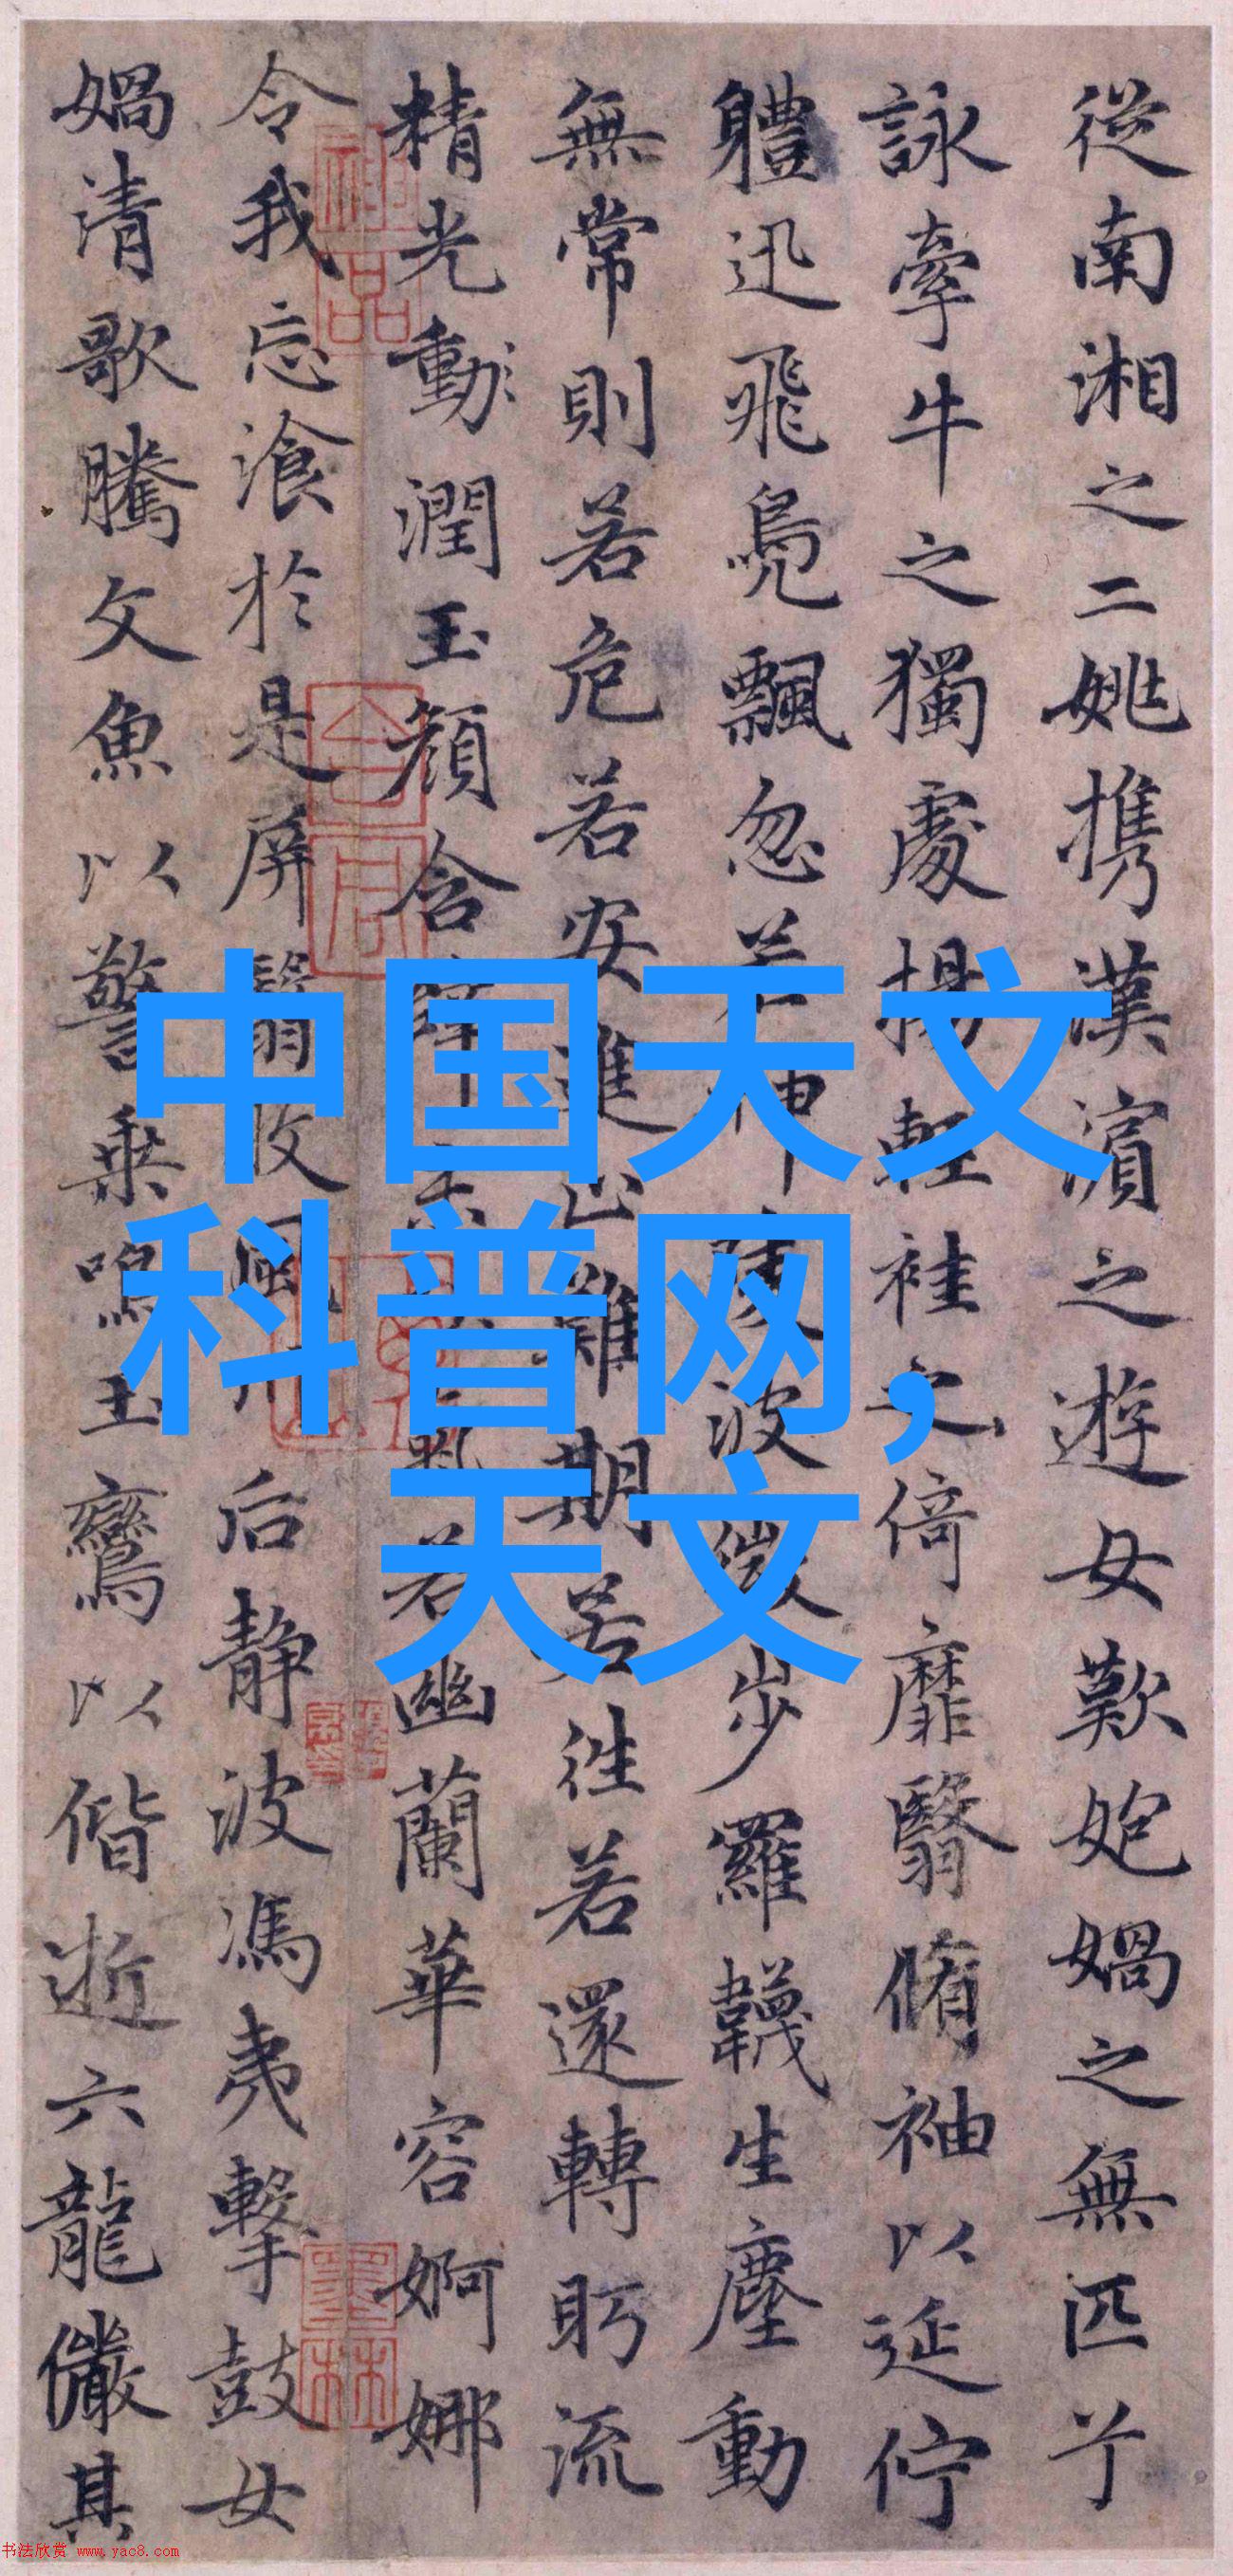 中国天文
科普网，
天文
從南湘之二姚携漢濱之遊女歎媧之無匹兮
詠牽牛之獨處揚輕袿之倚靡翳脩袖以延佇
軆迅飛鳧飄忽若神陵波微步羅韈生塵動
無常則若危若安進止難期若往若還轉眄流
精光動潤玉顏含辭未吐氣若幽蘭華容婀娜
令我忘飡於是屏翳收風川后静波馮夷擊鼓女
媧清歌騰文魚以警乗鳴玉鸞以偕逝六龍儼其
神品
墨林
书法欣赏 www.yac8.com